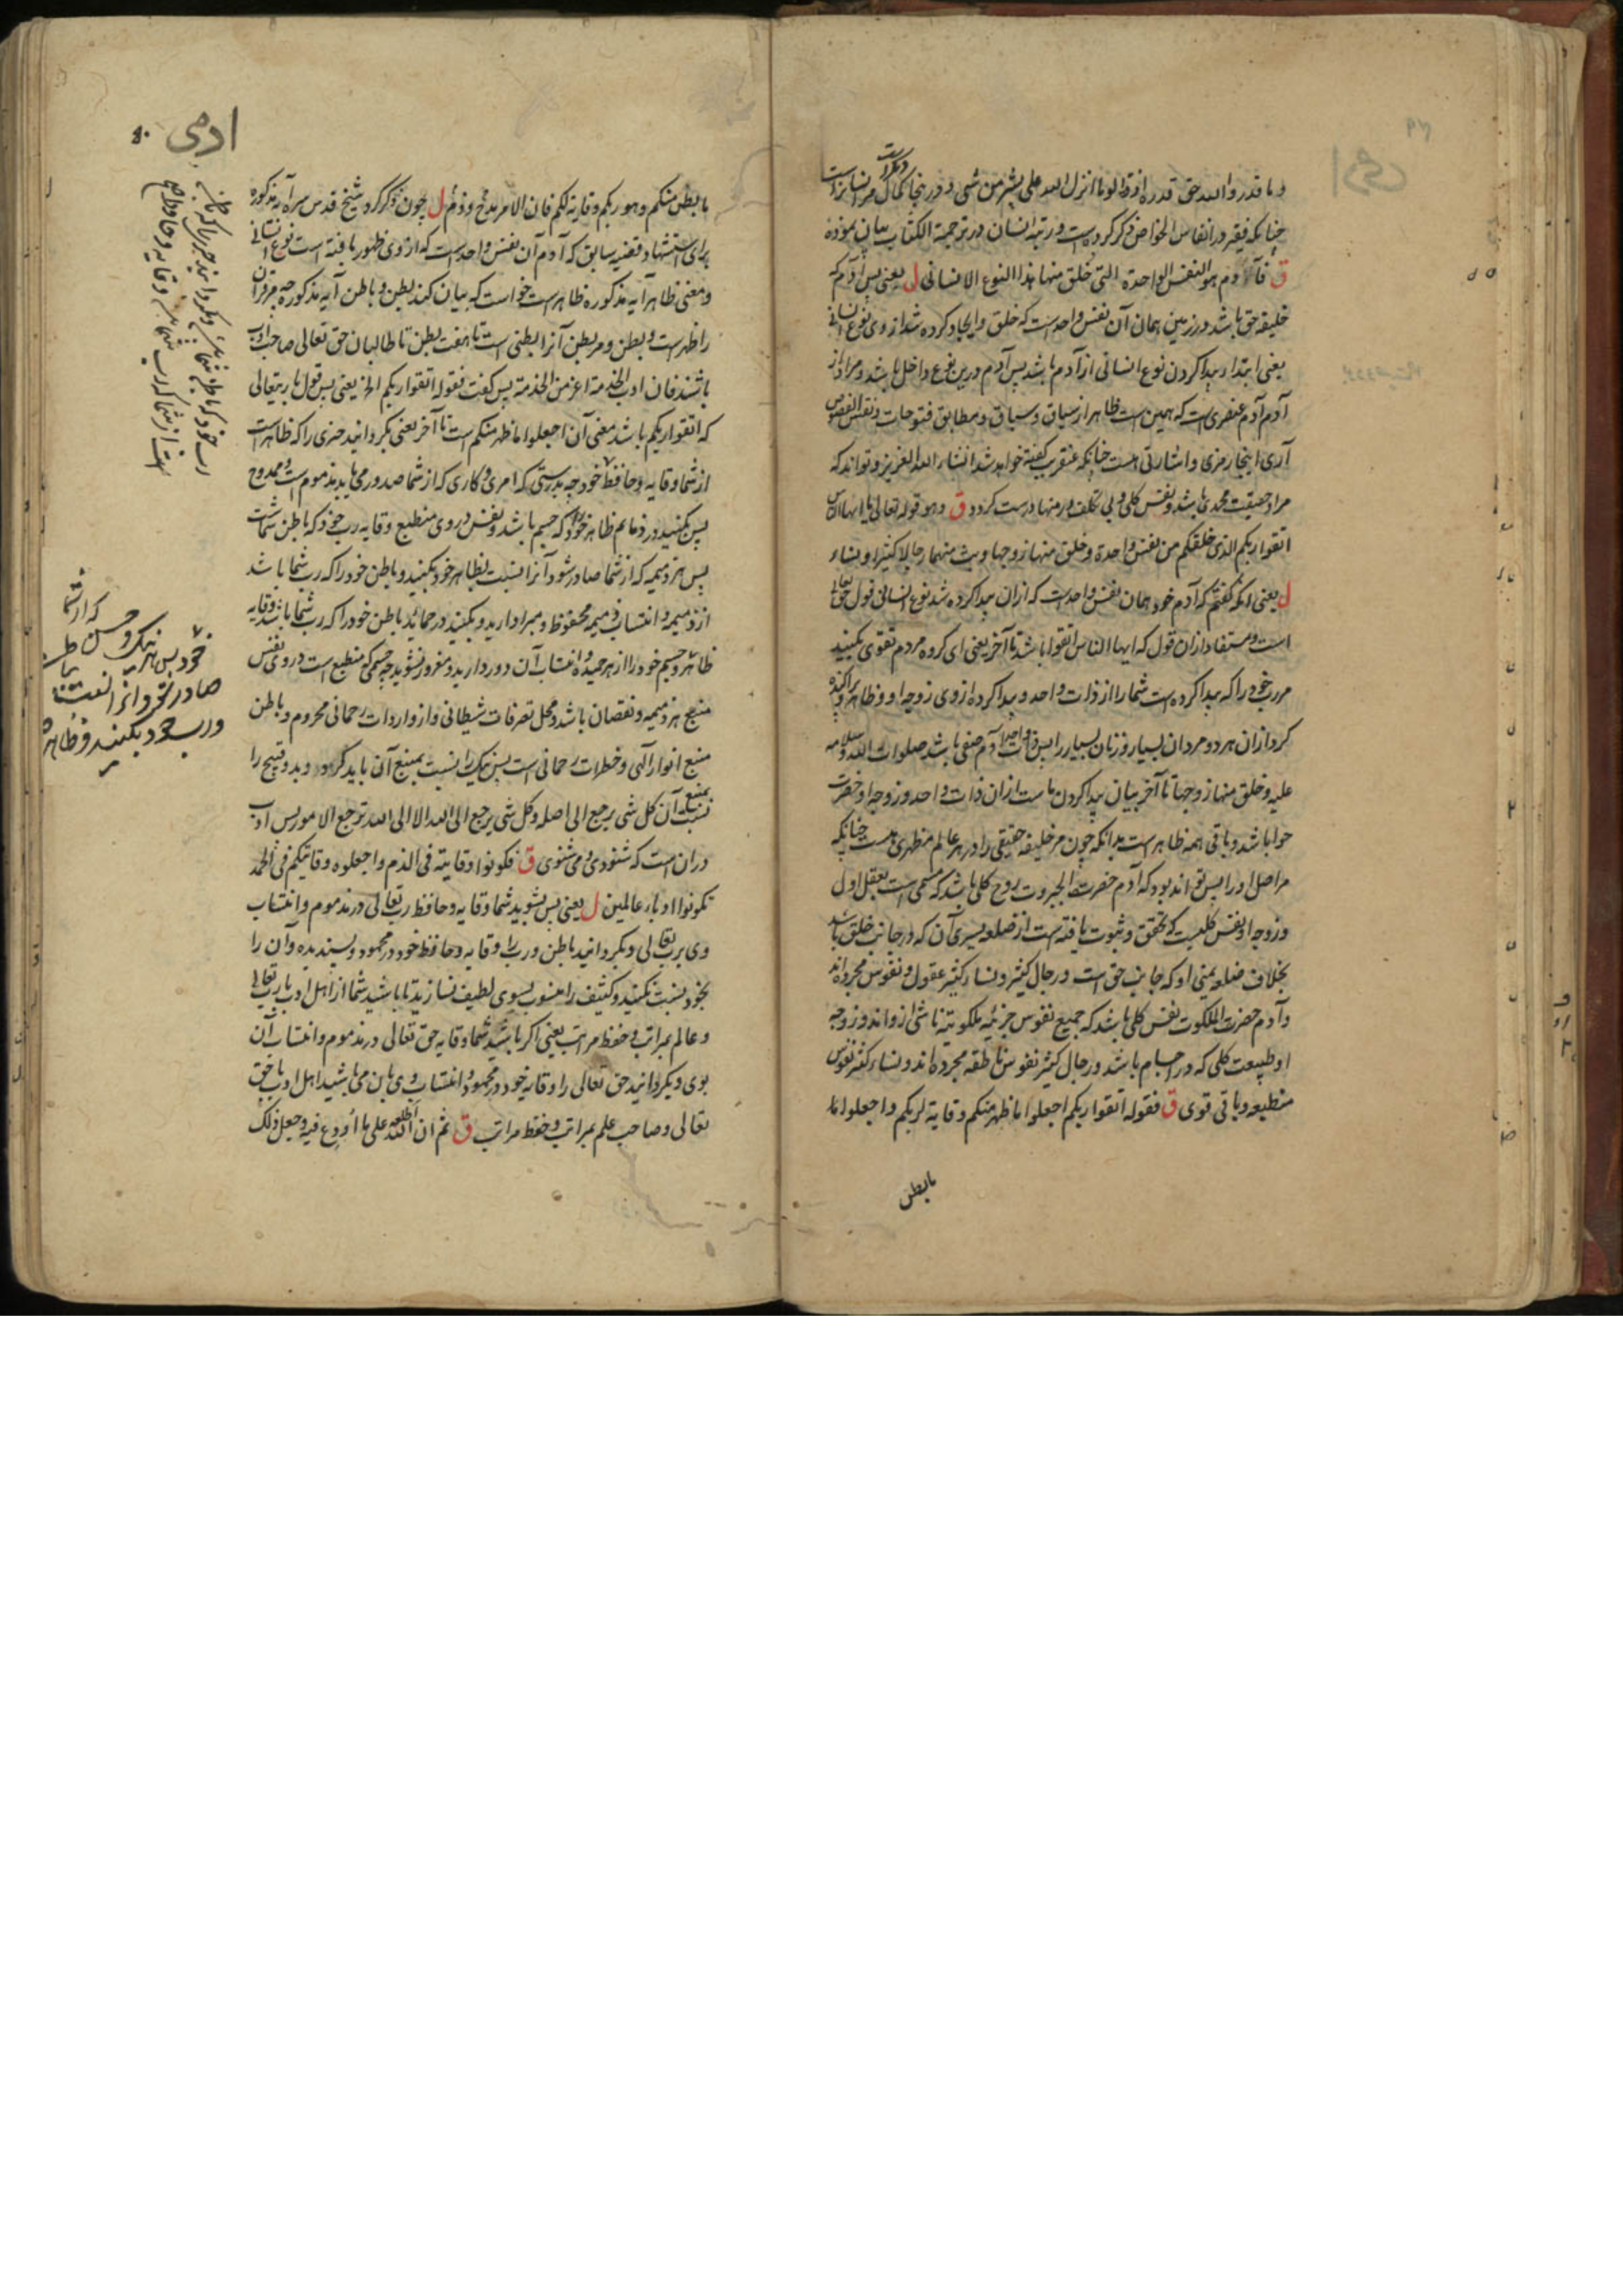 وما قدروا الله حق قدره اذ قالوا ما انزل الله علی بشر من شی و در ینجا کمال مر انسانراست
دیگر است
چنانکه فقیر در انفاس الخواص ذکر کرده است و رتبه انسان در ترجمة الکتاب بیان نموده
ق فآدم هو النفس الواحدة التی خلق منها هذا النوع الانسانی ل یعنی پس آدم که
خلیفه حق باشد در زمین همان آن نفس واحد است که خلق و ایجاد کرده شد از وی نوع انسانی
یعنی ابتدا پیدا کردن نوع انسانی از آدم باشد پس آدم درین نوع داخل باشد و مراد از
آدم آدم عنصری است که همین است ظاهر از سیاق و سباق و مطابق فتوحات و نقش الفصوص
آری اینجا رمزی و اشارتی هست چنانکه عنقریب گفته خواهد شد انشاء الله العزیز و تواند که
مراد حقیقت محمدی باشد و نفس کلی و بی تکلف در منها درست گردد ق وهو قوله تعالی یا ایها الناس
اتقوا ربکم الذی خلقکم من نفس واحدة وخلق منها زوجها وبث منهما رجالا کثیرا ونساء
ل یعنی آنکه گفتم که آدم خود همان نفس واحد است که ازان پیدا کرده شد نوع انسانی قول حق تعالی
است و مستفاد ازان قول که ایها الناس اتقوا باشد تا آخر یعنی ای گروه مردم تقوی بکنید
مر رب خود را که پیدا کرده است شما را از ذات واحد و پیدا کرده از وی زوجه او و ظاهر و پراکنده
کرد ازان هر دو مردان بسیار و زنان بسیار را پس ذات واحد آدم صفی باشد صلوات الله و سلامه
علیه و خلق منها زوجها تا آخر بیان پیدا کردن ماست ازان ذات واحد و زوجه او حضرت
حوا باشد و باقی همه ظاهر است بدانکه چون مر خلیفه حقیقی را در هر عالم مظهری هست چنانکه
مر اصل او را پس تواند بود که آدم حضرت الجبروت روح کلی باشد که مسمی است بعقل اول
و زوجه او نفس کلیست که تحقق و ثبوت یافته است از ضلع یسری آن که در جانب خلق باشد
بخلاف ضلع یمنی او که جانب حق است و رجال کثیر و نساء کثیر عقول و نفوس مجرده اند
و آدم حضرت الملکوت نفس کلی باشد که جمیع نفوس جزئیه ملکوتیه ناشی ازو اند و زوجه
او طبیعت کلی که در اجسام باشد و رجال کثیر نفوس ناطقه مجرده اند و نساء کثیر نفوس
منطبعه و باقی قوی ق فقوله اتقوا ربکم اجعلوا ما ظهر منکم وقایة لربکم واجعلوا ما
مابطن
ادمی ۵۰
ما بطن منکم وهو ربکم وقایة لکم فان الامر مدح وذم ل چون ذکر کرد شیخ قدس سره آیه مذکوره
برای استشهاد قضیه سابق که آدم آن نفس واحد است که از وی ظهور یافته است نوع انسانی
و معنی ظاهر آیه مذکوره ظاهر است خواست که بیان کند بطن و باطن آیه مذکور چه مر قرآن
را ظهر است و بطن و مر بطن آنرا بطنی است تا هفت بطن تا طالبان حق تعالی صاحب ادب
باشند فان ادب الخدمة اعز من الخدمة پس گفت فقوله اتقوا ربکم الخ یعنی پس قول باریتعالی
که اتقوا ربکم باشد معنی آن اجعلوا ما ظهر منکم است تا آخر یعنی بگردانید چیزی را که ظاهر است
از شما وقایه و حافظ خود چه بدرستی که امری و کاری که از شما صدور می یابد مذموم است و ممدوح
پس بکنید در ذمایم ظاهر خود را که جسم باشد و نفس در وی منطبع وقایه رب خود که باطن شماست
پس هر ذمیمه که از شما صادر شود آنرا نسبت بظاهر خود بکنید و باطن خود را که رب شما باشد
از ذمیمه و انتساب ذمیمه محفوظ و مبرا دارید و بکنید در حمائد باطن خود را که رب شما باشد وقایه
ظاهر و جسم خود را از هر حمیده و انتساب آن دور دارید و مغرور نشوید چه جسمی که منطبع است در وی نفس
منبع هر ذمیمه و نقصان باشد و محل تصرفات شیطانی و از واردات رحمانی محروم و باطن
منبع انوار الهی و خطرات رحمانی است پس نیک را نسبت بمنبع آن باید کرد و بد و قبیح را
نسبت بمنبع آن کل شی یرجع الی اصله و کل شی یرجع الی الله الا الی الله ترجع الامور پس ادب
دران است که شنودی و می شنوی ق فکونوا وقایته فی الذم واجعلوه وقایتکم فی الحمد
تکونوا ادباء عالمین ل یعنی پس بشوید شما وقایه و حافظ رب تعالی در مذموم و انتساب
وی برب تعالی و بگردانید باطن و رب را وقایه و حافظ خود در محمود و پسندیده و آن را
بخود نسبت نکنید و کثیف را منسوب بسوی لطیف نسازید تا باشید شما از اهل ادب با رب تعالی
و عالم بمراتب و حفظ مراتب یعنی اگر باشید شما وقایه حق تعالی در مذموم و انتساب آن
بوی و بگردانید حق تعالی را وقایه خود در محمود و انتساب وی بآن می باشید اهل ادب با حق
تعالی و صاحب علم بمراتب و حفظ مراتب ق ثم ان الله اطلعه علی ما اودع فیه وجعل ذلک
خود پس هر نیک و حسن که از شما
صادر شود آنرا نسبت بباطن
و رب خود بکنید و ظاهر